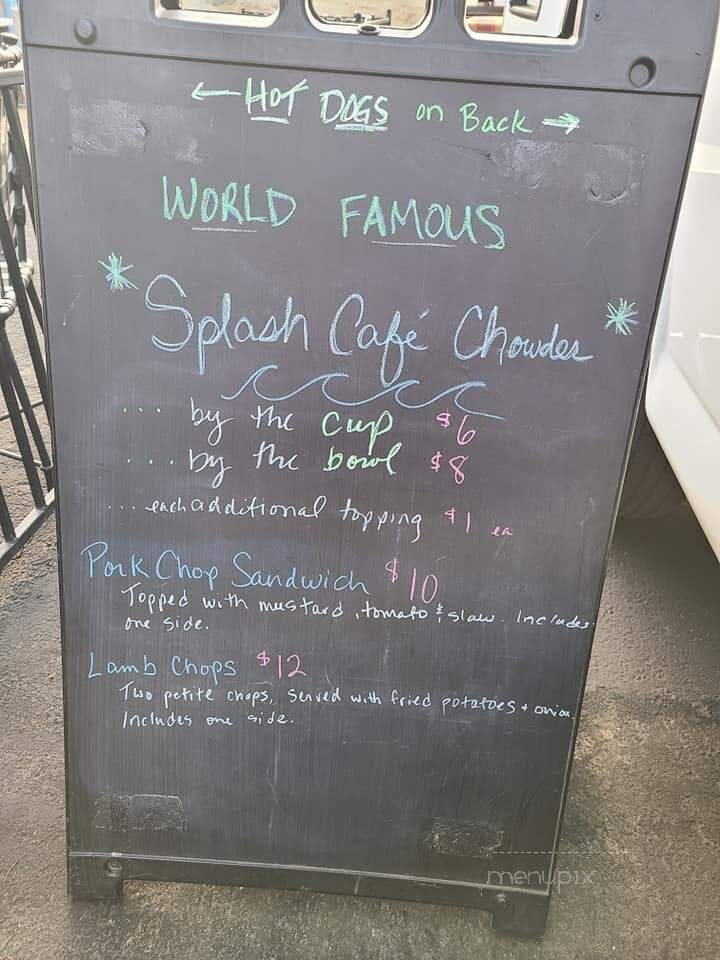 ← HOT DOGS on Back →
WORLD FAMOUS
* Splash Café Chowder *
... by the cup $6
... by the bowl $8
... each additional topping $1 ea
Pork Chop Sandwich $10
Topped with mustard, tomato & slaw. Includes
one side.
Lamb Chops $12
Two petite chops, served with fried potatoes + onion.
Includes one side.
menupix